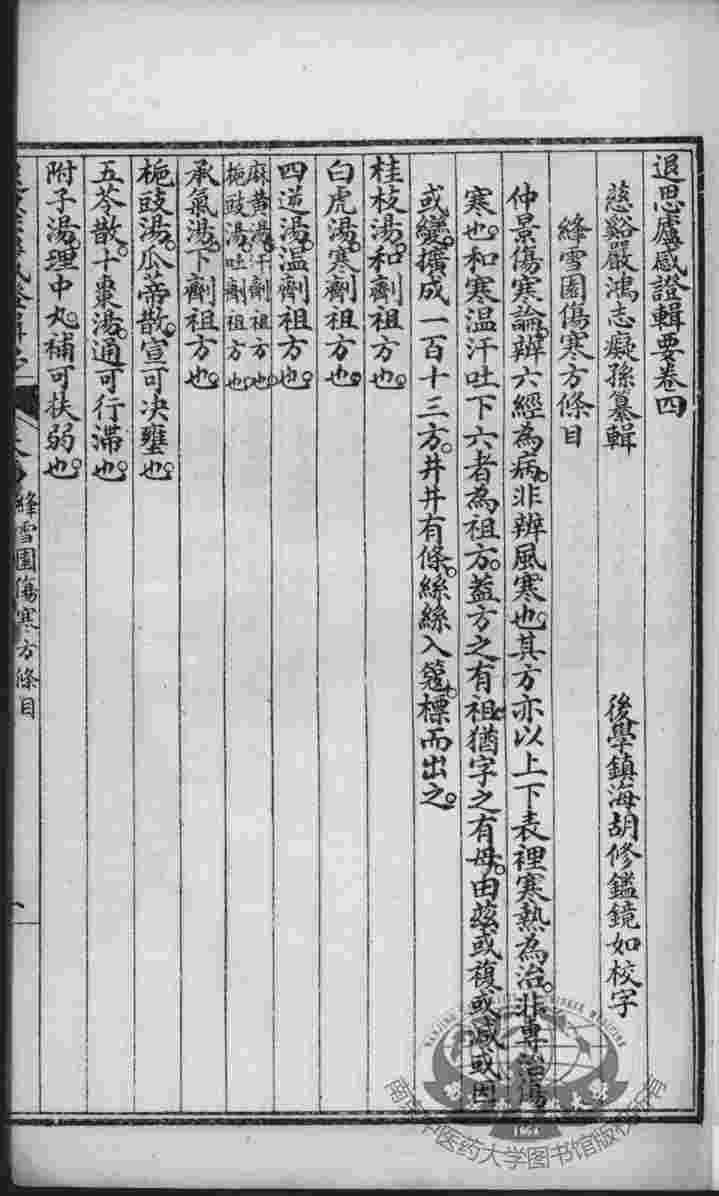 退思廬感證輯要卷四
慈谿嚴鴻志癡孫纂輯　後學鎮海胡修鑑鏡如校字
絳雪園傷寒方條目
仲景傷寒論。辨六經為病。非辨風寒也。其方亦以上下表裡寒熱為治。非專治傷
寒也。和寒温汗吐下六者為祖方。葢方之有祖。猶字之有母。由茲或複或減或因
或變。擴成一百十三方。井井有條。絲絲入筘。標而出之。
桂枝湯。和劑祖方也。
白虎湯。寒劑祖方也。
四逆湯。温劑祖方也。
麻黄湯。汗劑祖方也。
梔豉湯。吐劑祖方也。
承氣湯。下劑祖方也。
梔豉湯。瓜蒂散。宣可决壅也。
五苓散。十棗湯。通可行滯也。
附子湯。理中丸。補可扶弱也。
絳雪園傷寒方條目
南京中医药大学图书馆版权所有